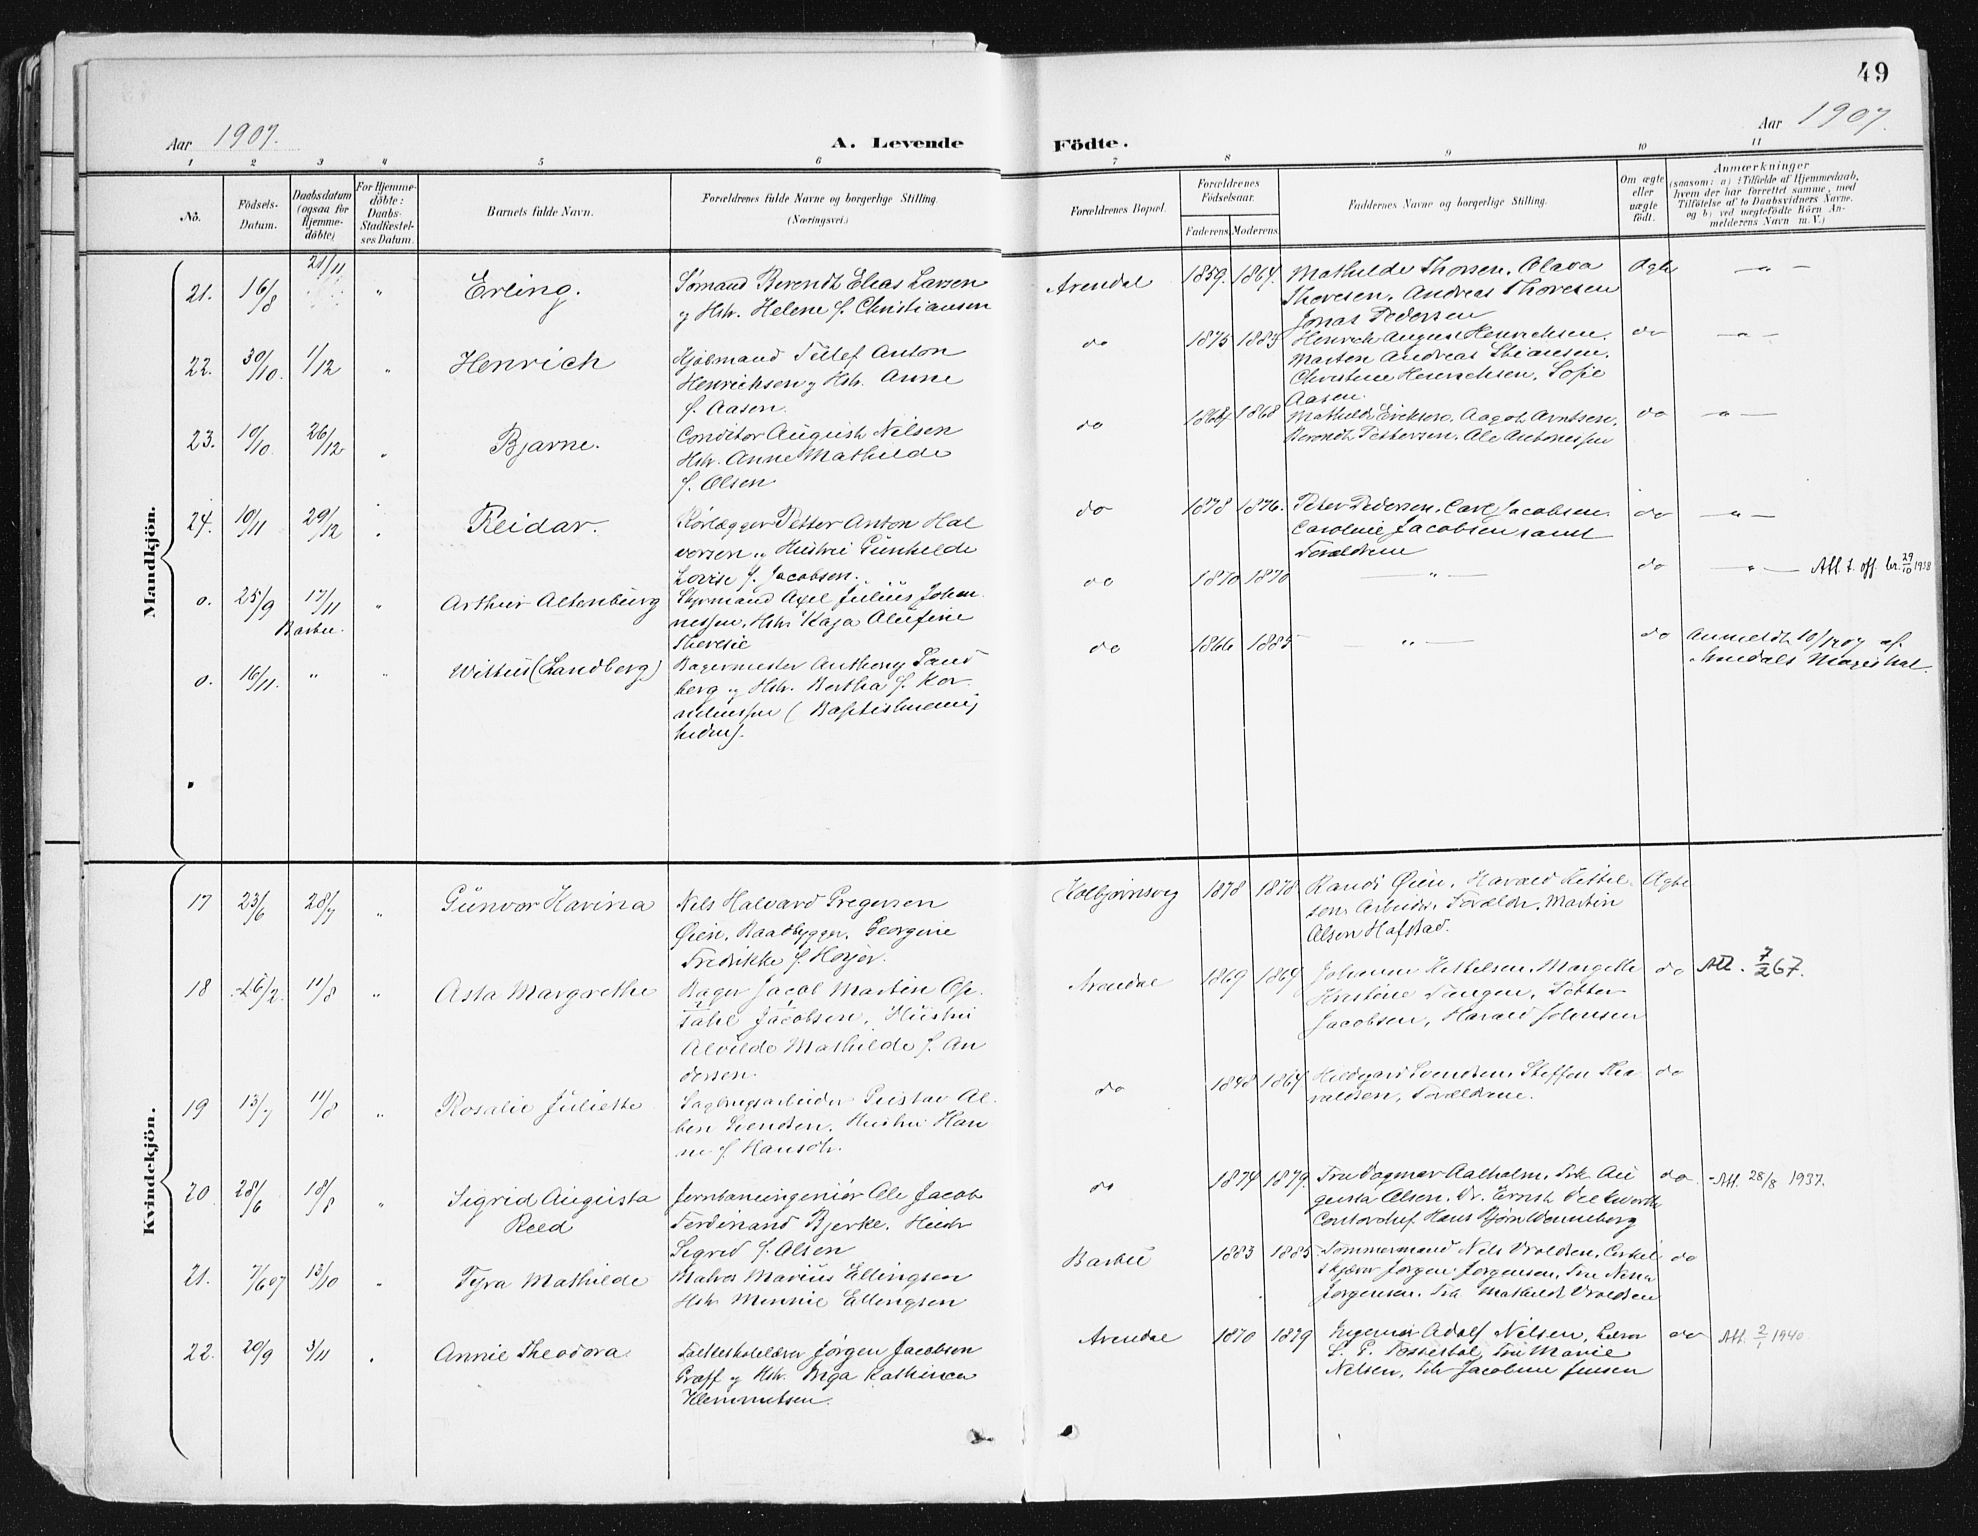 49
Aar 1907.
A. Levende Födte.
Aar 1907.
1 2 3 4 5 6 7 8 9 10 11
No.
Födsels-
Datum.
Daabsdatum
(ogsaa for
Hjemme-
döbte)
For Hjemme-
döbte:
Daabs-
Stadfæstel-
ses Datum.
Barnets fulde Navn.
Forældrenes fulde Navne og borgerlige Stilling.
(Næringsvei.)
Forældrenes Bopæl.
Forældrenes
Födselsaar.
Faderens. Moderens.
Faddernes Navne og borgerlige Stilling.
Om ægte
eller
uægte
födt.
Anmærkninger
(saasom: a) i Tilfælde af Hjemmedaab,
hvem der har forrettet samme, med
Tilföielse af to Daabsvidners Navne,
og b) ved uægtefödte Börn An-
melderens Navn m. V.)
Mandkjön.
21. 16/8 21/11 " Erling.
Sømand Berendt Elias Larsen
og Hstr. Helene f. Christiansen
Arendal 1859. 1864.
Mathilde Thorsen, Olava
Thoresen, Andreas Thoresen
Jonas Pedersen
Ægte — " —
22. 30/10. 1/12 " Henrich
Kjøbmand Tellef Anton
Henrichsen og Hstr. Anne
f. Aasen.
do 1875 1883
Henrich August Henrichsen.
Marten Andreas Stiansen.
Christine Henrichsen, Sofie
Aasen.
do — " —
23. 10/10. 26/12 " Bjarne.
Conditor August Nilsen
Hstr. Anne Mathilde
f. Olsen
do 1864 1868
Mathilde Eriksen, Aagot Arntsen,
Berendt Pettersen, Ole Antonessen
do — " —
24. 10/11 29/12 " Reidar.
Rørlægger Petter Anton Hal
vorsen og Hustru Gunhilde
Lovise f. Jacobsen.
do 1878 1876.
Peter Pedersen, Carl Jacobsen.
Caroline Jacobsen samt
Forældrene
do — " —
o. 25/9 17/11 " Arthur Altenburg
Barbu.
Styrmand Axel Julius Johan
nessen, Hstr. Kaja Olufine
Theresie
do 1870 1870 — " — do — " — Att. t. off. br. 29/10 1938
o. 16/11. " " Wilhus (Landberg)
Bagermester Anthony Land
berg og Hstr. Bertha f. Kor
neliussen (Baptistmenig
heden).
do 1866 1885 — " — do
Anmeldt 10/1 1907 af
Arendals Magistrat.
Kvindekjön.
17 23/6 28/7 " Gunvor Karina
Nils Halvard Gregersen
Øien, Baadbygger, Georgine
Fredrikke f. Høyer.
Kolbjørnsvig 1878 1878
Randi Øien, Harald Kittel-
sen, Arbeider, Forældr., Martin
Olsen Hafstad.
Ægte
18 16/2. 11/8 " Asta Margrethe
Bager Jacob Martin Op-
sahl Jacobsen, Hustru
Alvilde Mathilde f. An
dersen.
Arendal 1869 1869
Johanne Kittelsen, Margethe
Kristine Tangen, Petter
Jacobsen, Harald Johnsen
do Att. 7/2 67.
19 13/7 11/8 " Rosalie Juliette
Sagbrugsarbeider Gustav Al-
bert Svendsen, Hustru Han
ne f. Hansdtr.
do 1848 1864
Hildegard Svendsen, Steffen Rea
valdsen, Forældrene.
do
20 28/6 18/8 " Sigrid Augusta
Reed
Jernbaneingeniør Ole Jacob
Ferdinand Bjerke, Hustr
Sigrid f. Olsen
do 1874 1879.
Fru Dagmar Aalholm, Frk. Au
gusta Olsen, Dr. Ernst
Contorchef Hans Bjørn Wenneberg
do. Att. 28/8 1937.
21. 7/6 07 13/10 " Tyra Mathilde
Matros Marius Ellingsen
Hstr. Minnie Ellingsen
Barbu 1883 1885
Tømmermand Nils Vroldsen,
skjærer Jørgen Jørgensen, Fru
Jørgensen, Fru Mathilde Vroldsen
do
22. 20/9 3/11 " Annie Theodora
Jørgen Jacobsen
Græff og Hstr. Inga Kathinca
Klemmetsen.
Arendal 1870 1879
Ingeniør Adolf Nilsen, Lærer
Fru Marie
Nilsen, Frk. Jacobine Jensen
do Att. 2/1 1940